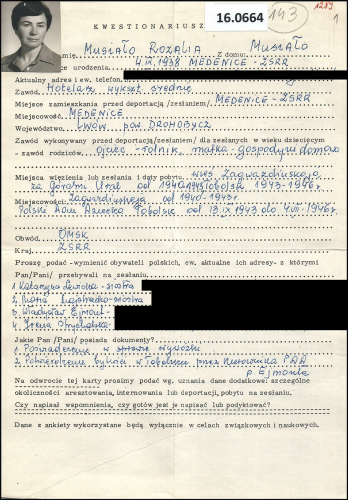 KWESTIONARIUSZ
16.0664
143
1289
1
imię, Musiało Rozalia Z domu: Musiało
urodzenia. 4.IX.1938 MEDENICE - ZSRR
Aktualny adres i ew. telefon.
Zawód. Hotelarz wykszt. średnie
Miejsce zamieszkania przed deportacją /zesłaniem/ MEDENICE - ZSRR
Miejscowość. MEDENICE
Województwo. LWÓW pow. DROHOBYCZ
Zawód wykonywany przed deportacją /dla zesłanych w wieku dziecięcym
- zawód rodziców/ ojciec - rolnik, matka - gospodyni domowa
Miejsca więzienia lub zesłania i daty pobytu. wieś
za Górami Ural od 1940-1943 Tobolsk 1943-1946 r.
Miejscowości. od 1940-1943 r.
Polski Dom Dziecka Tobolsk od 13.IX 1943 do 1946 r.
Obwód. OMSK
Kraj. ZSRR
Proszę podać - wymienić obywateli polskich, ew. aktualne ich adresy - z którymi
Pan/Pani/ przebywali na zesłaniu.
1. Katarzyna - siostra
2. - siostra
3. Władysław Ejmont -
4. Irena
Jakie Pan /Pani/ posiada dokumenty?
1. Poświadczenie o wywózki
2. Potwierdzenie bytności w Tobolsku przez Kierownika PDD
p. Ejmonta
Na odwrocie tej karty prosimy podać wg. uznania dane dodatkowe: szczególne
okoliczności aresztowania, internowania lub deportacji, pobytu na zesłaniu.
Czy napisał wspomnienia, czy gotów jest je napisać lub podyktować?
Dane z ankiety wykorzystane będą wyłącznie w celach związkowych i naukowych.